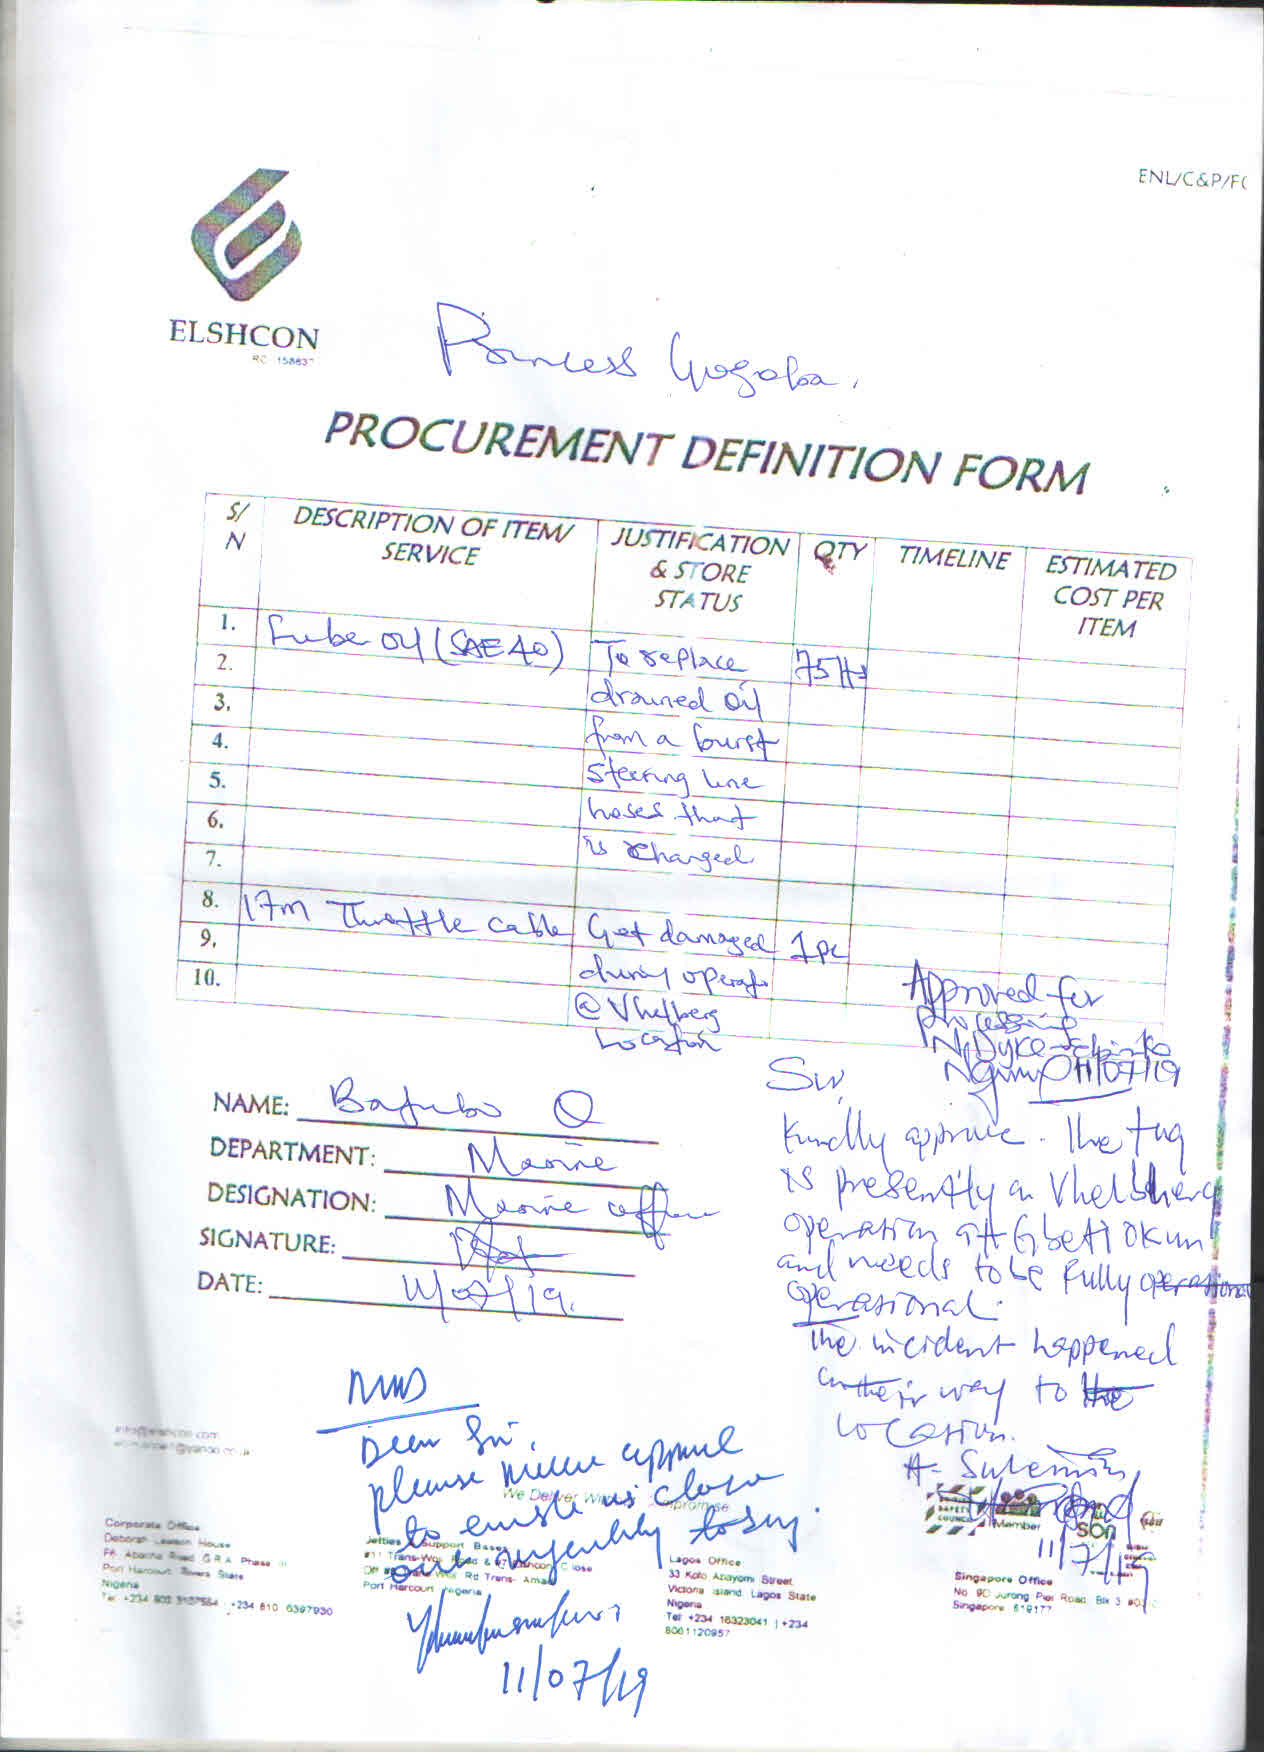 ENL/C&P/F
ELSHCON
RC 158637
Princess
PROCUREMENT DEFINITION FORM
S/N DESCRIPTION OF ITEM/SERVICE JUSTIFICATION & STORE STATUS QTY TIMELINE ESTIMATED COST PER ITEM
1. Lube oil (SAE 40) To replace 75
2.
3. drained oil
4. from a burst
5. steering line
6. hoses that
7. is changed
8. 17m Throttle cable Get damaged 1pc
9. during
10. @ Vhelberg
Location
Approved for
processing
11/07/19
NAME: Bafubo O
DEPARTMENT: Marine
DESIGNATION: Marine
SIGNATURE:
DATE: 11/07/19.
Sir,
Kindly approve. The tug
is presently on Vhelberg
operation at Gbetiokun
and needs to be fully operational
operational.
The incident happened
on their way to the
Location.
A. Suleman
11/7/19
MMD
Dear Sir,
please approve
to enable us close
today.
11/07/19
info@elshcon.com
We Deliver
Corporate Office
Deborah Lawson House
Abacha Road G.R.A. Phase
Port Harcourt Rivers State
Nigeria
+234 810 6397930
Jetties Support Bases
#11 Trans-
Rd Trans- Amadi
Port Harcourt Nigeria
Lagos Office
33 Kofo Abayomi Street
Victoria Island Lagos State
Nigeria
Tel +234 16323041 | +234
8061120957
Member
son
Singapore Office
No 9D Jurong Pier Road Blk 3
Singapore 619177